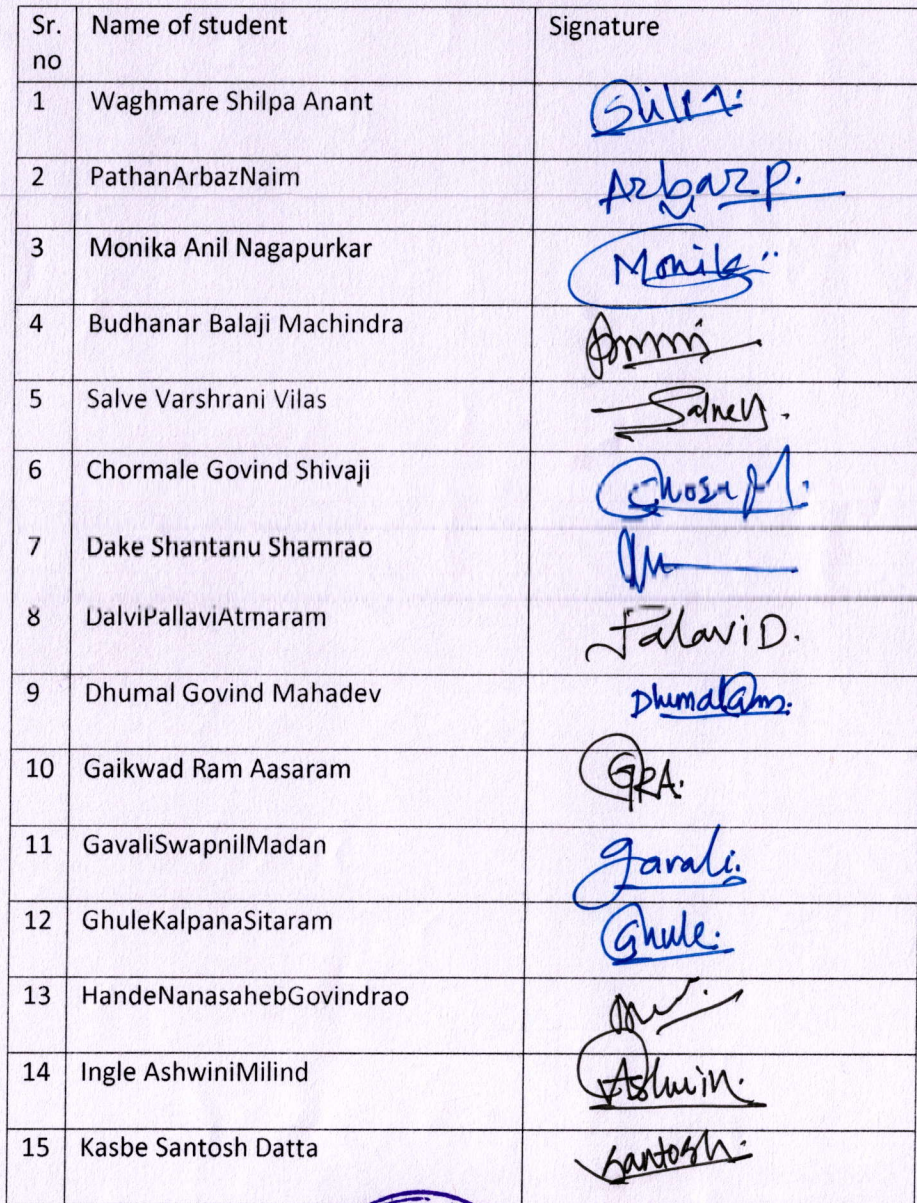 Sr. no Name of student Signature
1 Waghmare Shilpa Anant
2 PathanArbazNaim Arbaz P.
3 Monika Anil Nagapurkar Monika
4 Budhanar Balaji Machindra
5 Salve Varshrani Vilas
6 Chormale Govind Shivaji
7 Dake Shantanu Shamrao
8 DalviPallaviAtmaram Palavi D.
9 Dhumal Govind Mahadev Dhumal Gm.
10 Gaikwad Ram Aasaram GRA.
11 GavaliSwapnilMadan Gavali.
12 GhuleKalpanaSitaram Ghule.
13 HandeNanasahebGovindrao
14 Ingle AshwiniMilind Ashwin.
15 Kasbe Santosh Datta Santosh.